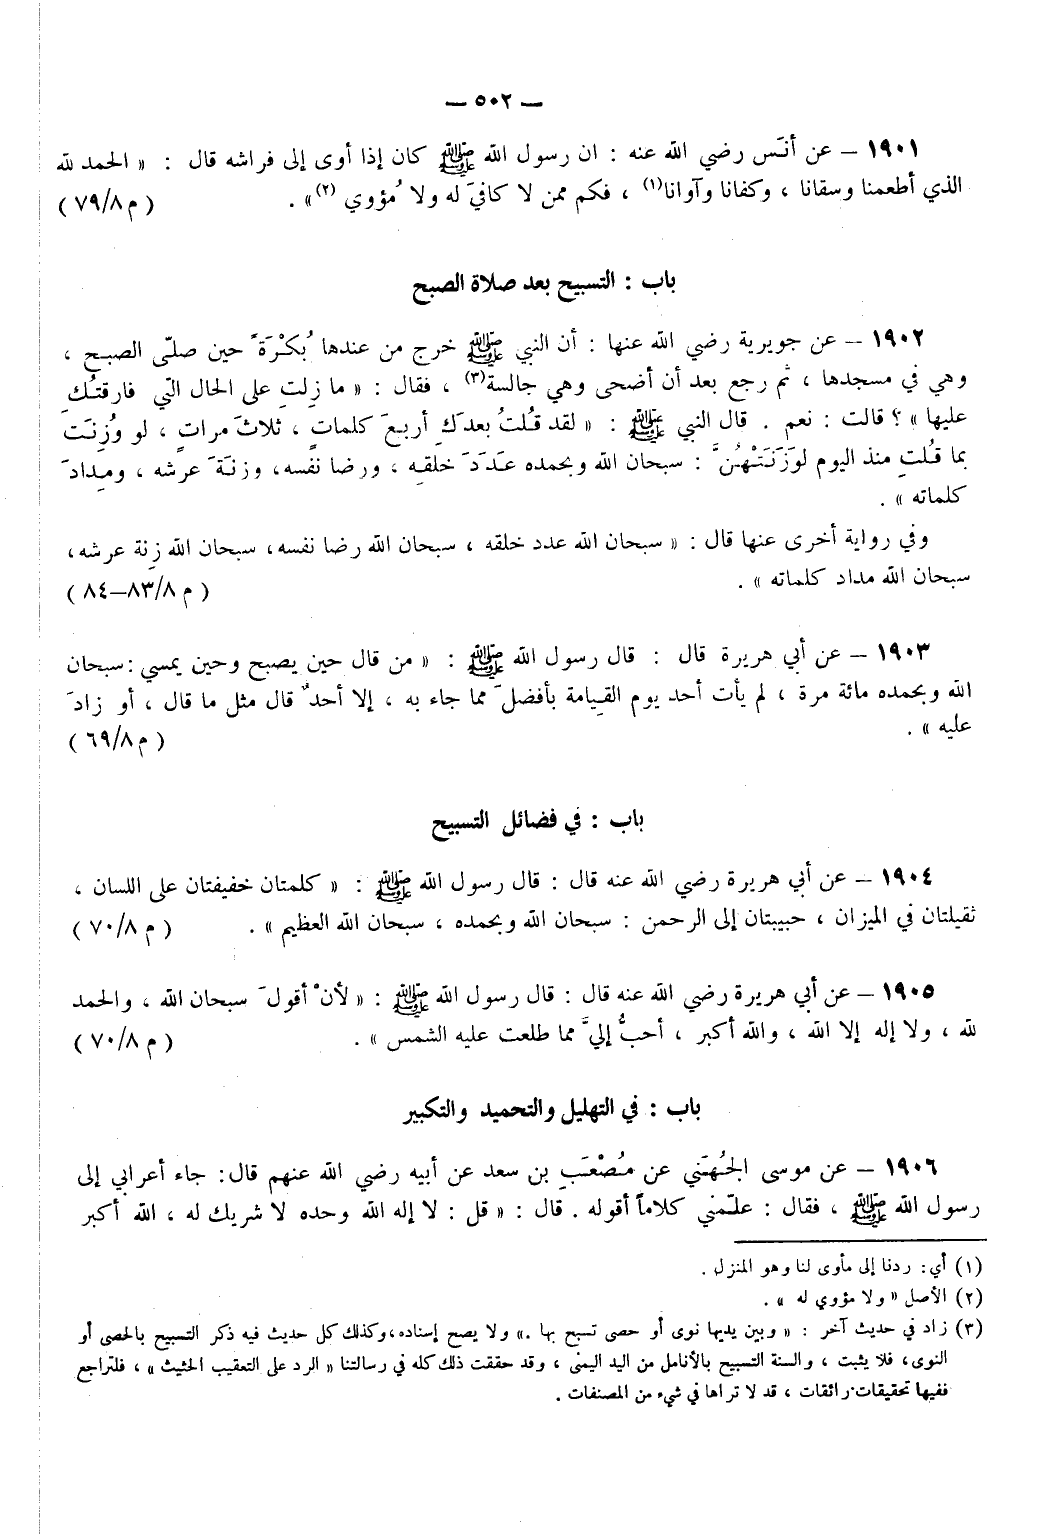 — ٥٠٢ —
١٩٠١ — عن أنَس رضي الله عنه : ان رسول الله ﷺ كان إذا أوى إلى فراشه قال : « الحمد لله
الذي أطعمنا وسقانا ، وكفانا وآوانا(١) ، فكم ممن لا كافيَ له ولا مُؤوي (٢)» . ( م ٧٩/٨ )
باب : التسبيح بعد صلاة الصبح
١٩٠٢ — عن جويرية رضي الله عنها : أن النبي ﷺ خرج من عندها بُكْرَةً حين صلّى الصبح ،
وهي في مسجدها ، ثم رجع بعد أن أضحى وهي جالسة(٣) ، فقال : « ما زلتِ على الحال التي فارقتُكِ
عليها » ؟ قالت : نعم . قال النبي ﷺ : « لقد قُلتُ بعدَكِ أربعَ كلماتٍ ، ثلاثَ مراتٍ ، لو وُزِنَت
بما قُلتِ منذ اليوم لوَزَنَتْهُنَّ : سبحان الله وبحمده عَدَدَ خلقه ، ورضا نفسه، وزنَةَ عرشه ، ومِدادَ
كلماته » .
وفي رواية أخرى عنها قال : « سبحان الله عدد خلقه ، سبحان الله رضا نفسه، سبحان الله زِنة عرشه،
سبحان الله مداد كلماته » . ( م ٨٣/٨—٨٤ )
١٩٠٣ — عن أبي هريرة قال : قال رسول الله ﷺ : « من قال حين يصبح وحين يمسي : سبحان
الله وبحمده مائة مرة ، لم يأت أحد يوم القيامة بأفضلَ مما جاء به ، إلا أحدٌ قال مثل ما قال ، أو زادَ
عليه » . ( م ٦٩/٨ )
باب : في فضائل التسبيح
١٩٠٤ — عن أبي هريرة رضي الله عنه قال : قال رسول الله ﷺ : « كلمتان خفيفتان على اللسان ،
ثقيلتان في الميزان ، حبيبتان إلى الرحمن : سبحان الله وبحمده ، سبحان الله العظيم » . ( م ٧٠/٨ )
١٩٠٥ — عن أبي هريرة رضي الله عنه قال : قال رسول الله ﷺ : « لأنْ أقولَ سبحان الله ، والحمد
لله ، ولا إله إلا الله ، والله أكبر ، أحبُّ إليَّ مما طلعت عليه الشمس » . ( م ٧٠/٨ )
باب : في التهليل والتحميد والتكبير
١٩٠٦ — عن موسى الجُهَني عن مُصْعَبِ بن سعد عن أبيه رضي الله عنهم قال: جاء أعرابي إلى
رسول الله ﷺ ، فقال : علّمني كلاماً أقوله . قال : « قل : لا إله الله وحده لا شريك له ، الله أكبر
(١) أي: ردنا إلى مأوى لنا وهو المنزل .
(٢) الأصل « ولا مؤوي له » .
(٣) زاد في حديث آخر : « وبين يديها نوى أو حصى تسبح بها .» ولا يصح إسناده،وكذلك كل حديث فيه ذكر التسبيح بالحصى أو
النوى، فلا يثبت ، والسنة التسبيح بالأنامل من اليد اليمنى ، وقد حققت ذلك كله في رسالتنا « الرد على التعقيب الحثيث » ، فلتراجع
ففيها تحقيقات رائقات ، قد لا تراها في شيء من المصنفات .